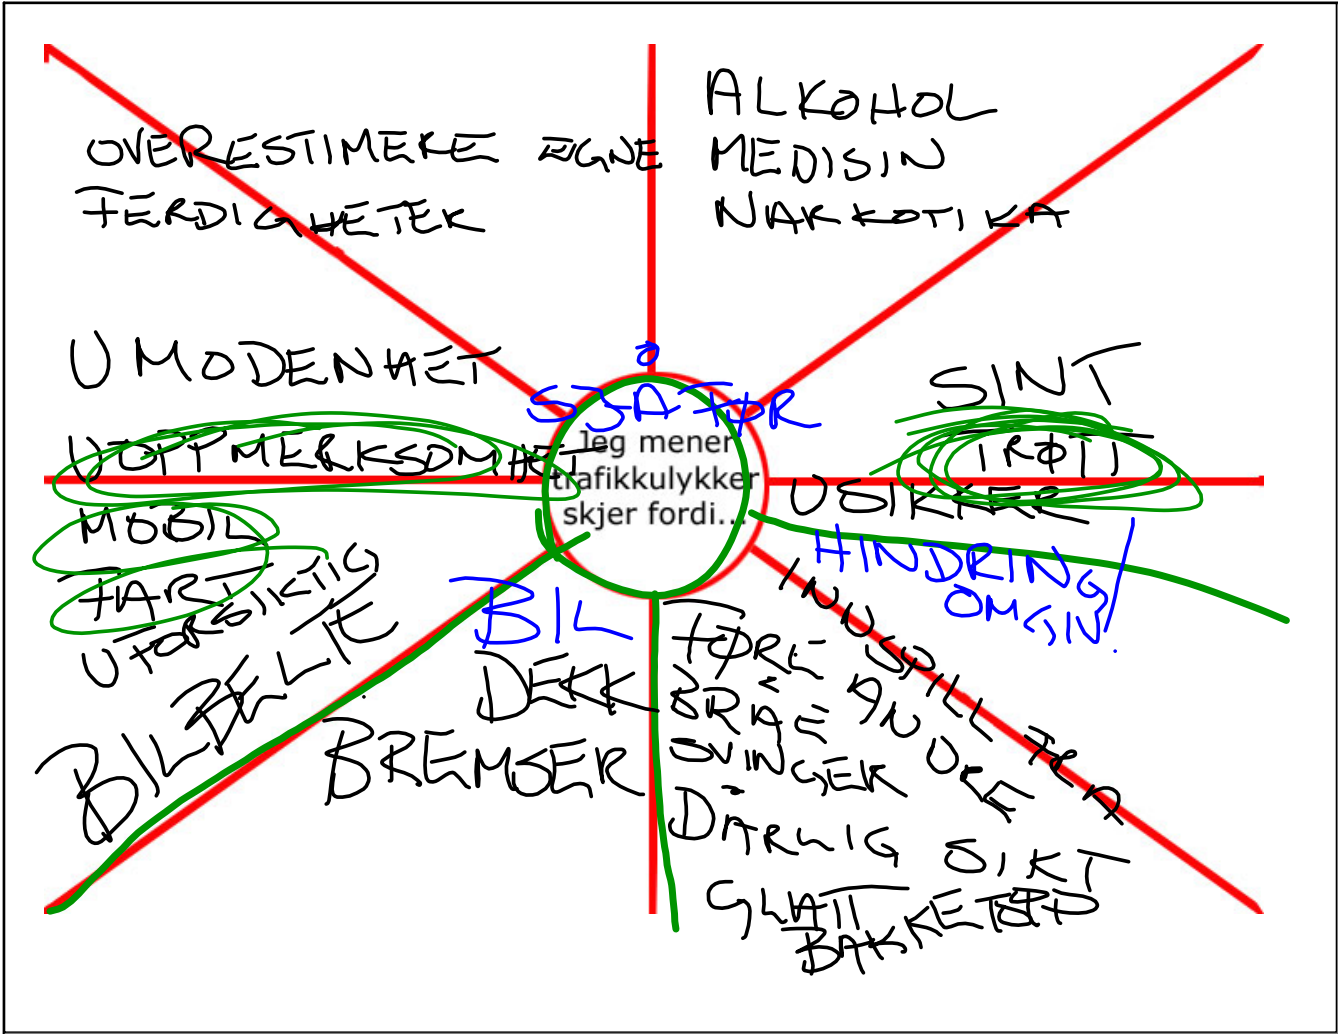 OVERESTIMERE EGNE
FERDIGHETER
ALKOHOL
MEDISIN
NARKOTIKA
UMODENHET
UOPPMERKSOMHET
MOBIL
FART
UFORSIKTIG
BILBELTE
SJÅFØR
Jeg mener
trafikkulykker
skjer fordi...
SINT
TRØTT
USIKKER
HINDRING
OMGIV.
BIL
DEKK
BREMSER
FØRE
BRÅE
SVINGER
DÅRLIG SIKT
GLATT
BAKKETOPP
INNSPILL FRA
ANDRE